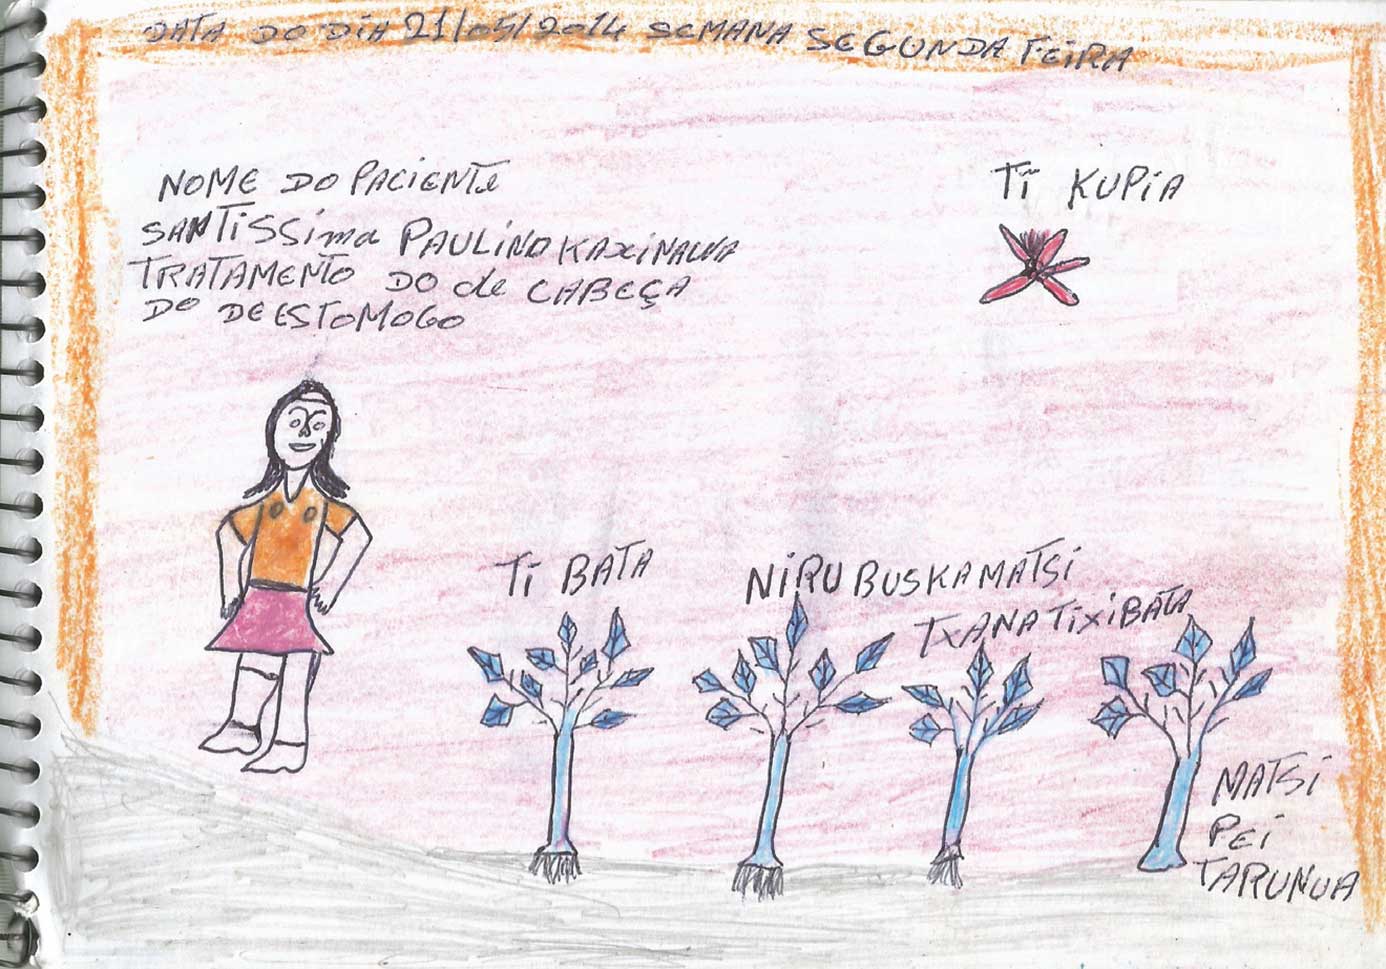 DATA DO DIA 21/05/2014 SEMANA SEGUNDA FEIRA
NOME DO PACIENTE
SANTISSima PAULINO KAXINAWA
TRATAMENTO DO de CABEÇA
DO DE ESTOMOGO
TI KUPIA
TI BATA
NIRU BUSKA MATSI
TXANA TIXI BATA
MATSI
PEI
TARUNUA